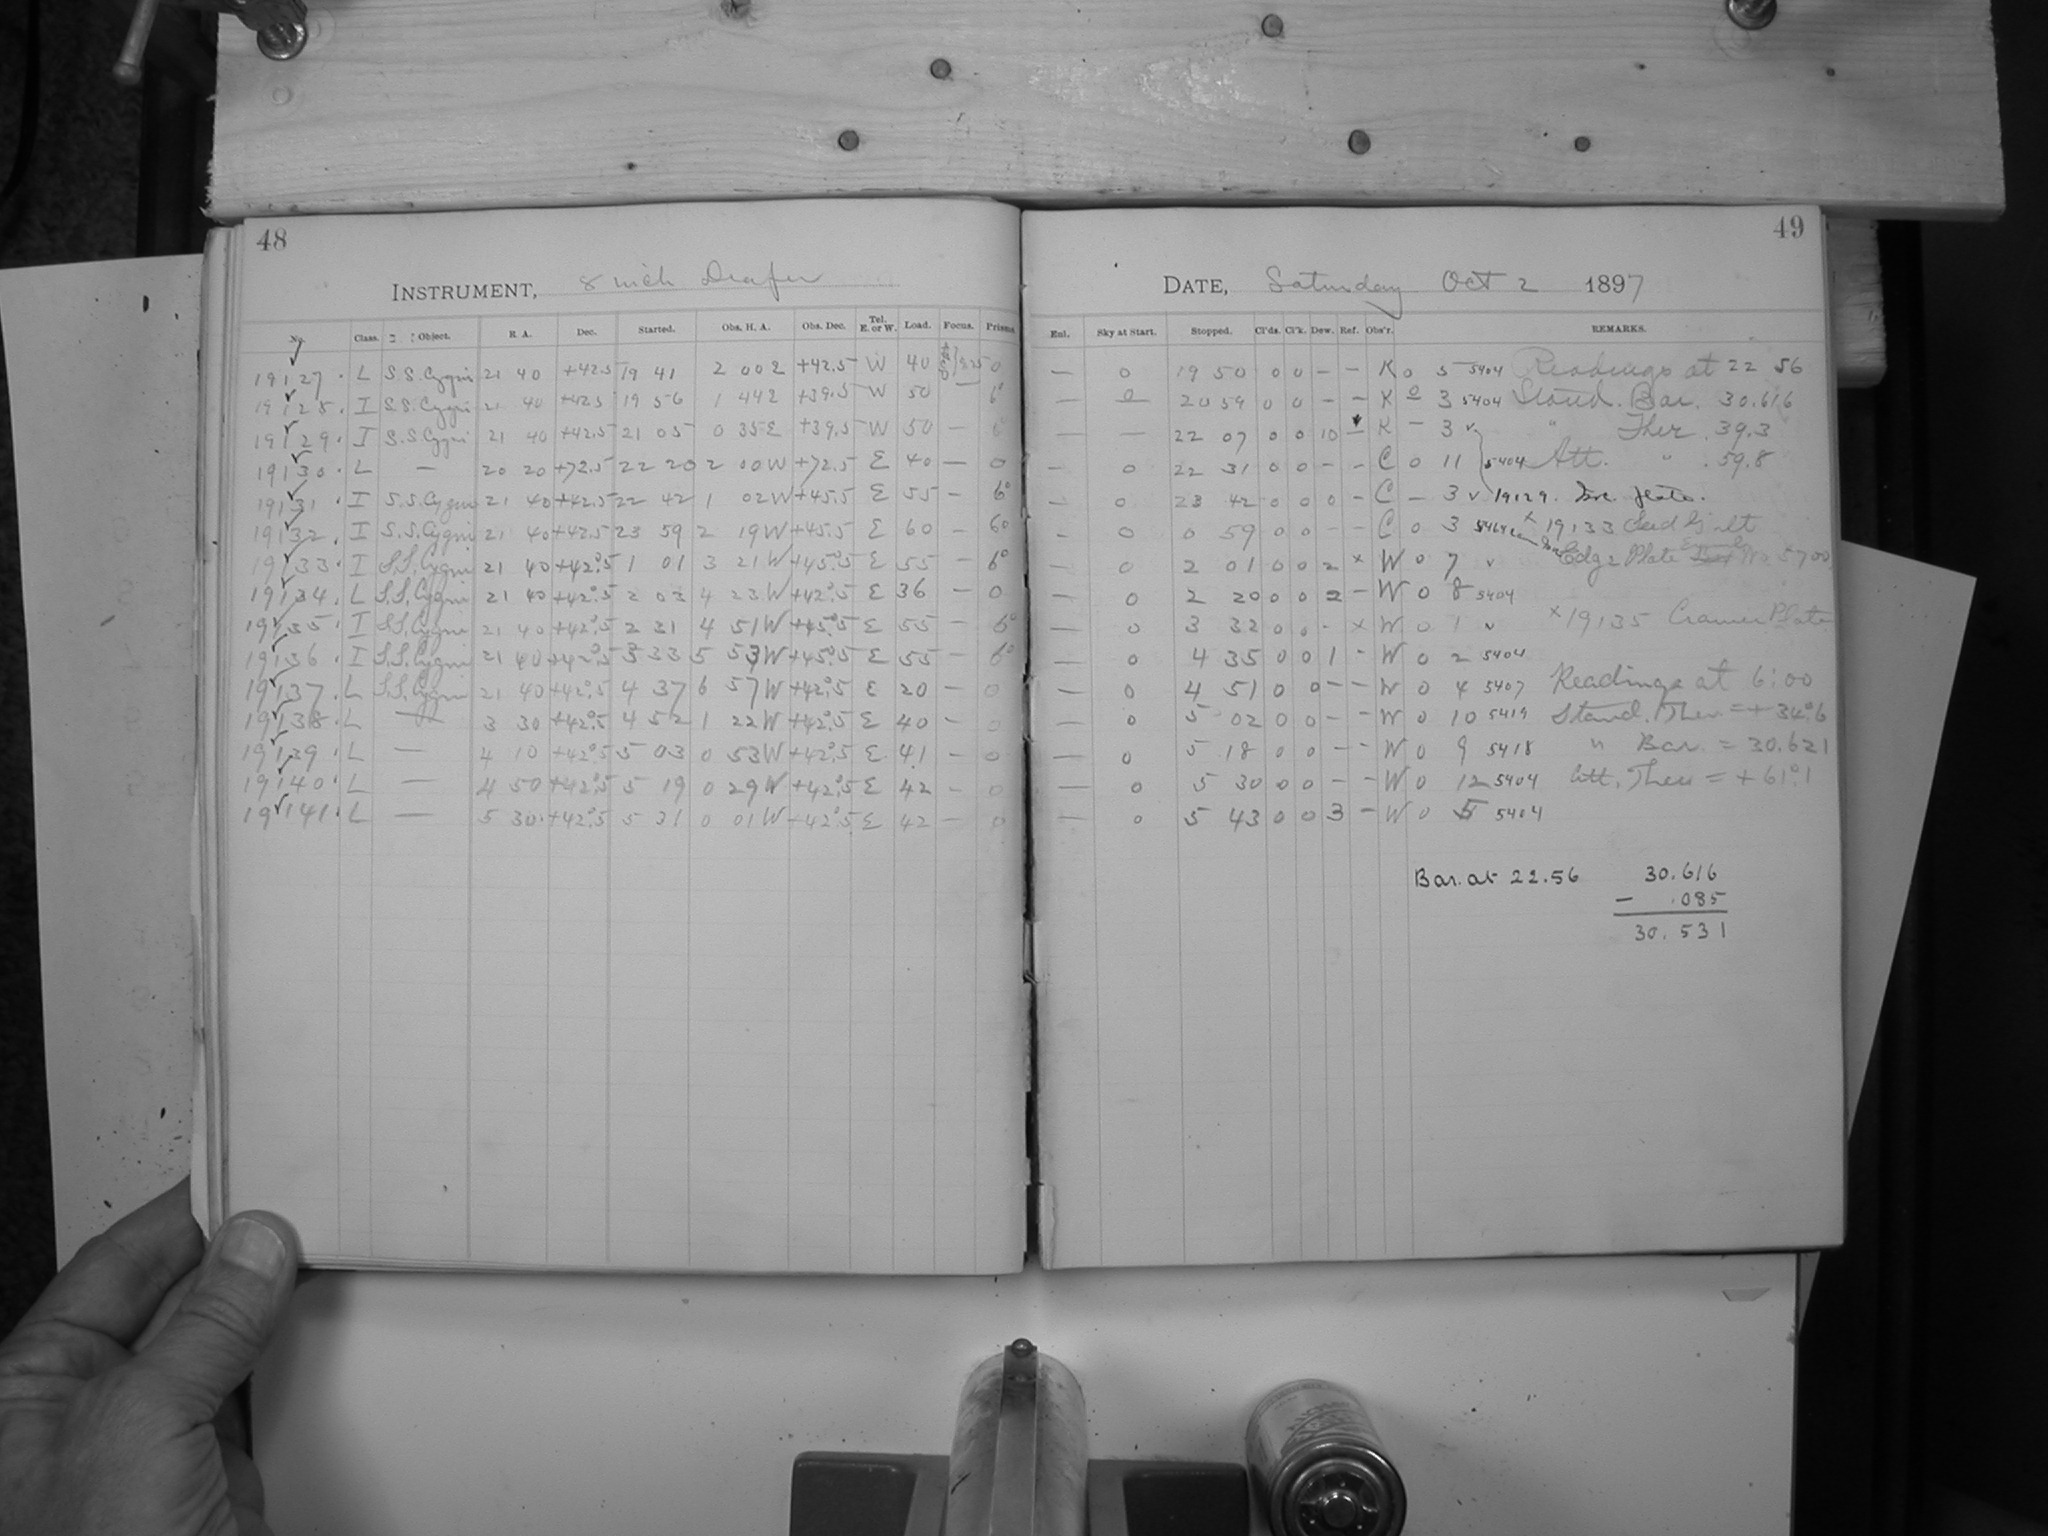 48
INSTRUMENT, 8 inch Draper
No. Class. Object. R. A. Dec. Started. Obs. H. A. Obs. Dec. Tel. E. or W. Load. Focus. Prisms.
19127. L S.S. Cygni 21 40 +42.5 19 41 2 00 E +42.5 W 40 0
19128. I S.S. Cygni 21 40 +42.5 19 56 1 44 E +39.5 W 50 6°
19129. I S.S. Cygni 21 40 +42.5 21 05 0 35 E +39.5 W 50 — 6
19130. L — 20 20 +72.5 22 20 2 00 W +72.5 E 40 — 0
19131. I S.S. Cygni 21 40 +42.5 22 42 1 02 W +45.5 E 55 — 6°
19132. I S.S. Cygni 21 40 +42.5 23 59 2 19 W +45.5 E 60 — 6°
19133. I S.S. Cygni 21 40 +42°.5 1 01 3 21 W +45°.5 E 55 — 6°
19134. L S.S. Cygni 21 40 +42°.5 2 03 4 23 W +42°.5 E 36 — 0
19135. I S.S. Cygni 21 40 +42°.5 2 31 4 51 W +45°.5 E 55 — 6°
19136. I S.S. Cygni 21 40 +42°.5 3 33 5 53 W +45°.5 E 55 — 6°
19137. L S.S. Cygni 21 40 +42°.5 4 37 6 57 W +42°.5 E 20 — 0
19138. L — 3 30 +42°.5 4 52 1 22 W +42°.5 E 40 — 0
19139. L — 4 10 +42°.5 5 03 0 53 W +42°.5 E 41 — 0
19140. L — 4 50 +42°.5 5 19 0 29 W +42°.5 E 42 — 0
19141. L — 5 30 +42°.5 5 31 0 01 W +42°.5 E 42 — 0
49
DATE, Saturday Oct 2 1897
Enl. Sky at Start. Stopped. Cl'ds. Cl'k. Dew. Ref. Obs'r. REMARKS.
— 0 19 50 0 0 – – K 0 5 5404 Readings at 22 56
— 0 20 59 0 0 – – K 0 3 5404 Stand. Bar. 30.616
— — 22 07 0 0 10 – K – 3 ✓ " Ther. 39.3
— 0 22 31 0 0 – – C 0 11 5404 Att. " 59.8
— 0 23 42 0 0 0 – C – 3 ✓ 19129. plate.
— 0 0 59 0 0 – – C 0 3 × 19133 Seed Gilt
— 0 2 01 0 0 2 × W 0 7 ✓ Edge Plate No 5700
— 0 2 20 0 0 2 – W 0 8 5404
— 0 3 32 0 0 – × W 0 1 ✓ × 19135 Cramer Plate
— 0 4 35 0 0 1 – W 0 2 5404
— 0 4 51 0 0 – – W 0 4 5407 Readings at 6:00
— 0 5 02 0 0 – – W 0 10 5419 Stand. Ther = + 34°.6
— 0 5 18 0 0 – – W 0 9 5418 " Bar = 30.621
— 0 5 30 0 0 – – W 0 12 5404 Att. Ther = + 61°.1
— 0 5 43 0 0 3 – W 0 5 5404
Bar. at 22.56 30.616
– .085
30.531